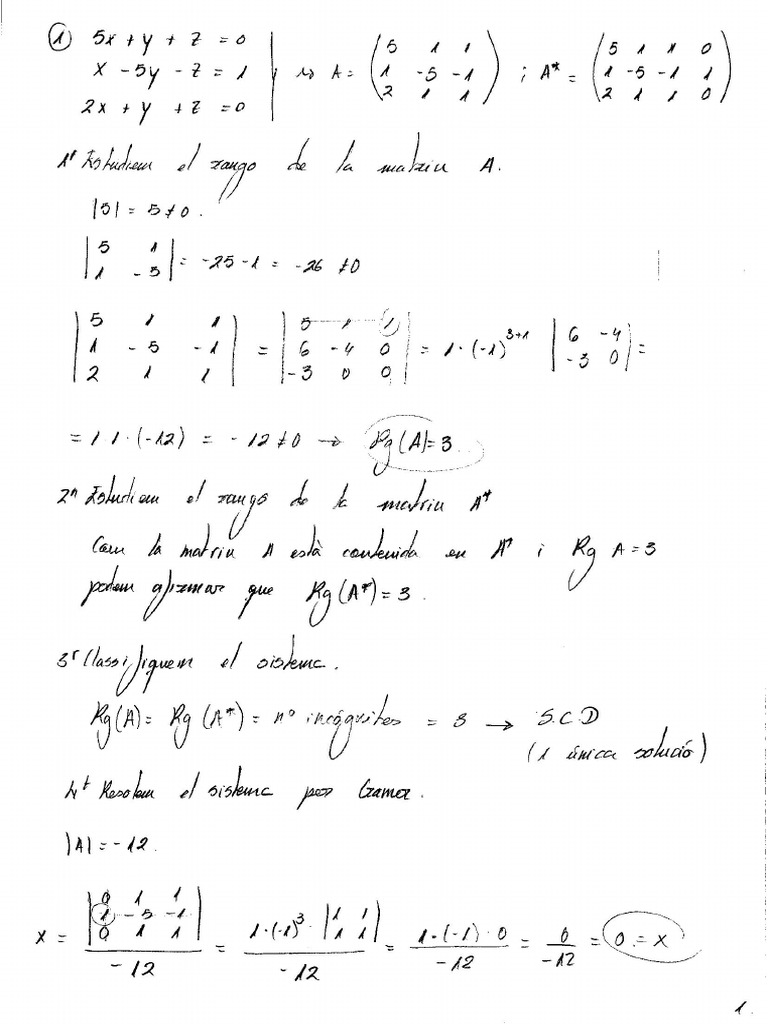 ① 5x + y + z = 0
x - 5y - z = 1
2x + y + z = 0
⇒ A = (5 1 1; 1 -5 -1; 2 1 1) ; A* = (5 1 1 0; 1 -5 -1 1; 2 1 1 0)
1r Estudiem el rango de la matriu A.
|5| = 5 ≠ 0.
|5 1; 1 -5| = -25 - 1 = -26 ≠ 0
|5 1 1; 1 -5 -1; 2 1 1| = |5 1 1; 6 -4 0; -3 0 0| = 1·(-1)^(3+1) |6 -4; -3 0| =
= 1·1·(-12) = -12 ≠ 0 → Rg(A) = 3
2n Estudiem el rango de la matriu A*
Com la matriu A està contenida en A* i Rg A = 3
podem afirmar que Rg(A*) = 3.
3r Classifiquem el sistema.
Rg(A) = Rg(A*) = nº incógnites = 3 → S.C.D
(1 única solució)
4t Resolem el sistema per Cramer.
|A| = -12.
x = |0 1 1; 1 -5 -1; 0 1 1| / -12 = 1·(-1)^3·|1 1; 1 1| / -12 = 1·(-1)·0 / -12 = 0 / -12 = 0 = x
1.